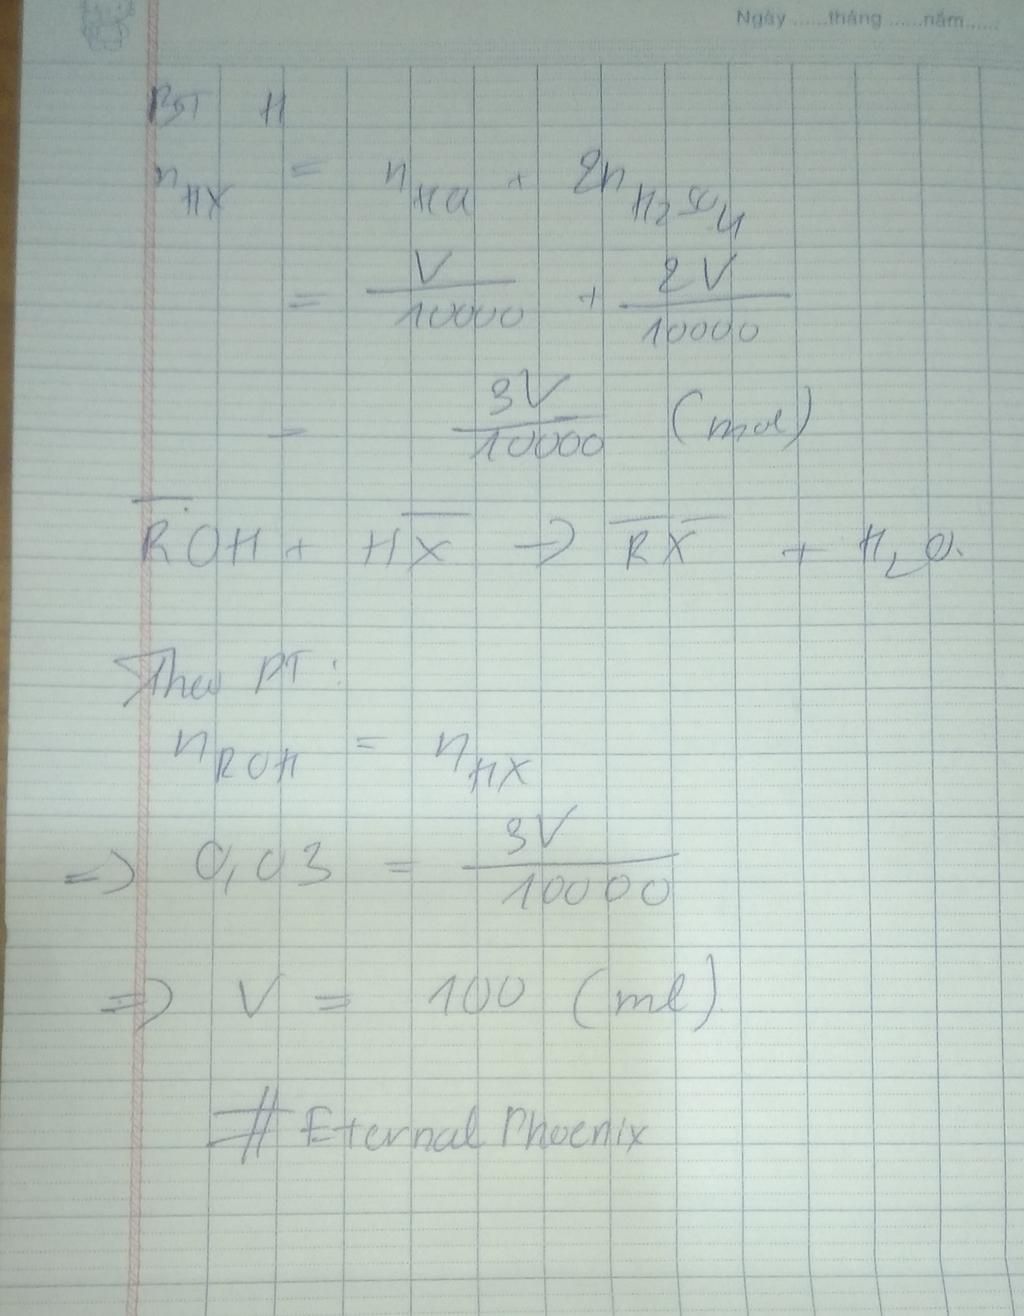 Ngày ......tháng ......năm......
BT H
nHX = nHCl + 2nH2SO4
= V/10000 + 2V/10000
= 3V/10000 (mol)
R̅OH + HX̅ → R̅X̅ + H2O.
Theo PT :
nROH = nHX
=> 0,03 = 3V/10000
=> V = 100 (ml)
# Eternal Phoenix